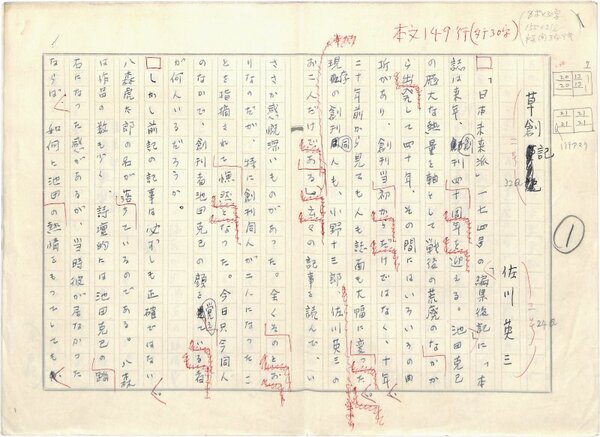 本文149行(1行30字)
草創記
佐川英三
①
「日本未来派」一七四号の編集後記に、「本
誌は来年、創刊四十周年を迎える。池田克己
の厖大な熱量を軸として戦後の荒廃のなか
ら出発して四十年、その間にはいろいろの曲
折があり、創刊当初からだけではなく、十年
二十年前から見ても人も誌面も大幅に変った。
現存の創刊同人も、小野十三郎、佐川英三の
お二人だけである」云々の記事を読んで、い
ささか感慨深いものがあった。全くそのとお
りなのだが、特に創刊同人が二人になったこ
とを指摘されて愕然となった。今日只今同人
のなかで、創刊者池田克己の顔を覚えている者
が何人いるだろうか。
しかし前記の記事は必ずしも正確ではない
八森虎太郎の名が落ちているのである。八森
は作品の数も少く、詩壇的には池田克己の蔭
になった感があるが、当時彼が居なかった
ならば、如何に池田の熱情をもってしても、